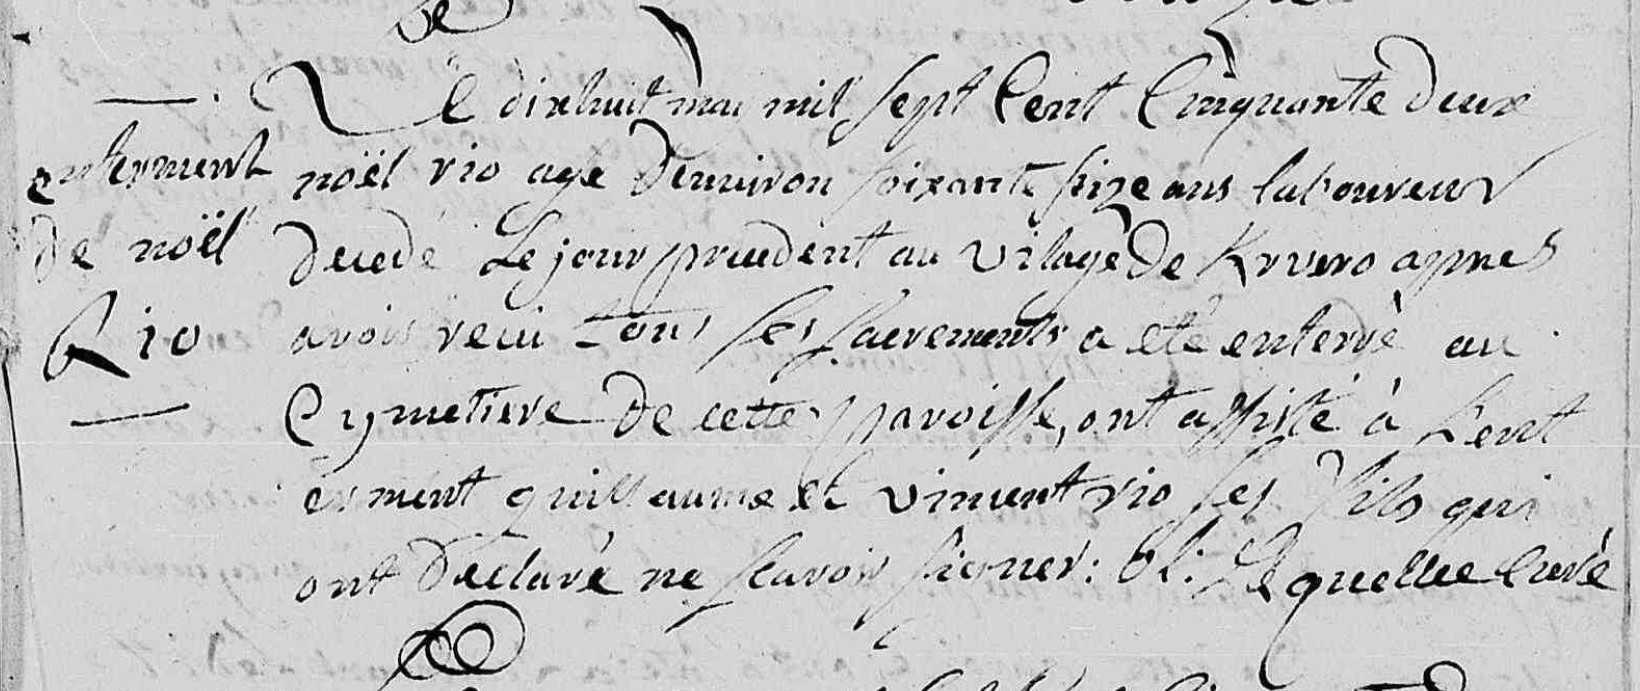 Le dixhuit mai mil sept Cent Cinquante deux
enterment
noël rio agé denviron soixante size ans laboureur
de noël
decedé Le jour precedent au vilage De Krvero apprès
Rio
avoir recu tous ses sacrements a eté enterré au
Cymetiere de cette paroisse, ont assisté à L'ent
erment guillaume et vincent rio ses fils qui
ont declaré ne scavoir signer: ol: Le quellec Curé